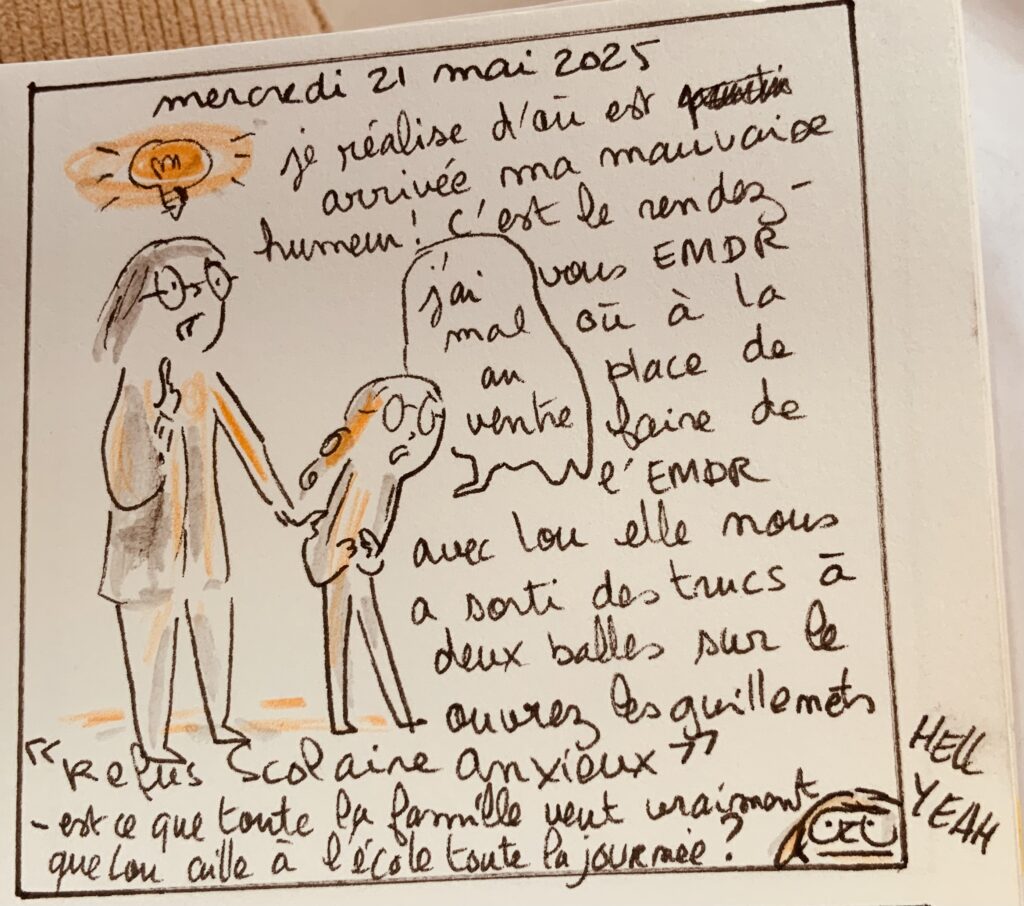 mercredi 21 mai 2025
je réalise d'où est
arrivée ma mauvaise
humeur! C'est le rendez-
vous EMDR
où à la
place de
faire de
l'EMDR
avec Lou elle nous
a sorti des trucs à
deux balles sur le
- ouvrez les guillemets
"Refus Scolaire Anxieux"
- est ce que toute la famille veut vraiment
que Lou aille à l'école toute la journée?
j'ai
mal
au
ventre
HELL
YEAH